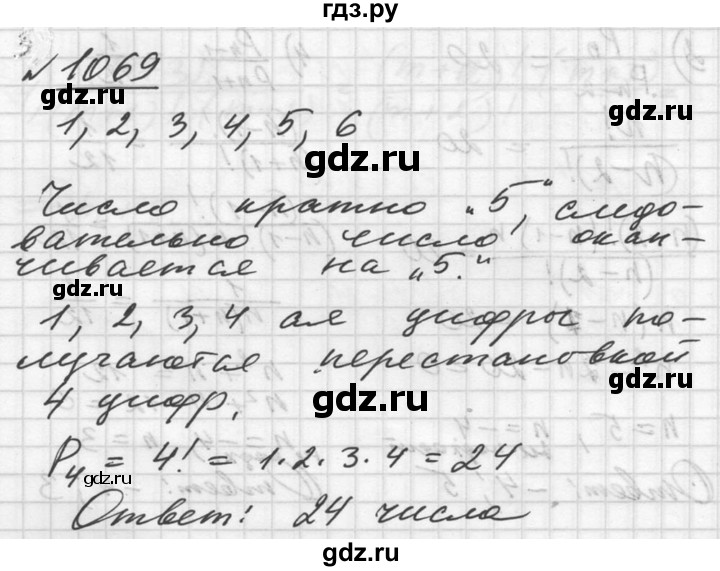 гдз.ру
№ 1069
gdz.ru
1, 2, 3, 4, 5, 6
gdz.ru
Число кратно „5", следо-
вательно число окан-
чивается на „5."
gdz.ru
1, 2, 3, 4 ая цифры по-
лучаются перестановкой
gdz.ru
4 цифр.
gdz.ru
P₄ = 4! = 1·2·3·4 = 24
gdz.ru
Ответ: 24 числа
gdz.ru